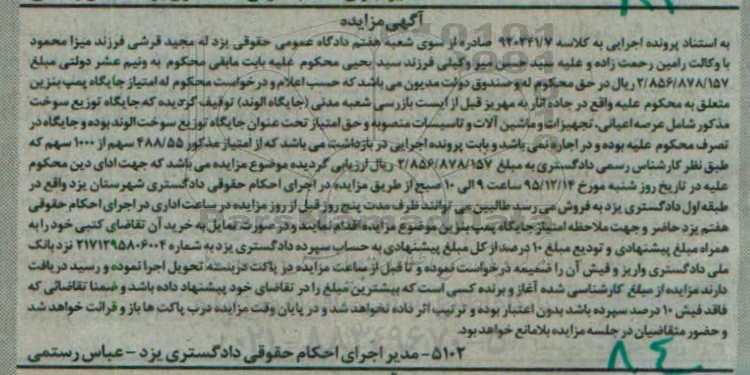 آگهی مزایده
به استناد پرونده اجرایی به کلاسه ۹۲۰۲۴۱/۷ صادره از سوی شعبه هفتم دادگاه عمومی حقوقی یزد له مجید قرشی فرزند میزا محمود
با وکالت رامین رحمت زاده و علیه سید حسن میر وکیلی فرزند سید یحیی محکوم علیه بابت مابقی محکوم به ونیم عشر دولتی مبلغ
۲/۸۵۶/۸۷۸/۱۵۷ ریال در حق محکوم له و صندوق دولت مدیون می باشد که حسب اعلام و درخواست محکوم له امتیاز جایگاه پمپ بنزین
متعلق به محکوم علیه واقع در جاده انار به مهریز قبل از ایست بازرسی شعبه مدنی (جایگاه الوند) توقیف گردیده که جایگاه توزیع سوخت
مذکور شامل عرصه اعیانی، تجهیزات و ماشین آلات و تاسیسات منصوبه و حق امتیاز تحت عنوان جایگاه توزیع سوخت الوند بوده و جایگاه در
تصرف محکوم علیه بوده و در اجاره نمی باشد و بابت پرونده اجرایی در بازداشت می باشد که از امتیاز مذکور ۴۸۸/۵۵ سهم از ۱۰۰۰ سهم که
طبق نظر کارشناس رسمی دادگستری به مبلغ ۲/۸۵۶/۸۷۸/۱۵۷ ریال ارزیابی گردیده موضوع مزایده می باشد که جهت ادای دین محکوم
علیه در تاریخ روز شنبه مورخ ۹۵/۱۲/۱۴ ساعت ۹ الی ۱۰ صبح از طریق مزایده در اجرای احکام حقوقی دادگستری شهرستان یزد واقع در
طبقه اول دادگستری یزد به فروش می رسد طالبین می توانند ظرف مدت پنج روز قبل از روز مزایده در ساعت اداری در اجرای احکام حقوقی
هفتم یزد حاضر و جهت ملاحظه امتیاز جایگاه پمپ بنزین موضوع مزایده اقدام نمایند و در صورت تمایل به خرید آن تقاضای کتبی خود را به
همراه مبلغ پیشنهادی و تودیع مبلغ ۱۰ درصد از کل مبلغ پیشنهادی به حساب سپرده دادگستری یزد به شماره ۲۱۷۱۲۹۵۸۰۶۰۰۴ نزد بانک
ملی دادگستری واریز و فیش آن را ضمیمه درخواست نموده و تا قبل از ساعت مزایده در پاکت دربسته تحویل اجرا نموده و رسید دریافت
دارند مزایده از مبلغ کارشناسی شده آغاز و برنده کسی است که بیشترین مبلغ را در تقاضای خود پیشنهاد داده باشد و ضمنا تقاضائی که
فاقد فیش ۱۰ درصد سپرده باشد بدون اعتبار بوده و ترتیب اثر داده نخواهد شد و در پایان وقت مزایده درب پاکت ها باز و قرائت خواهد شد
و حضور متقاضیان در جلسه مزایده بلامانع خواهد بود.
۵۱۰۲- مدیر اجرای احکام حقوقی دادگستری یزد - عباس رستمی